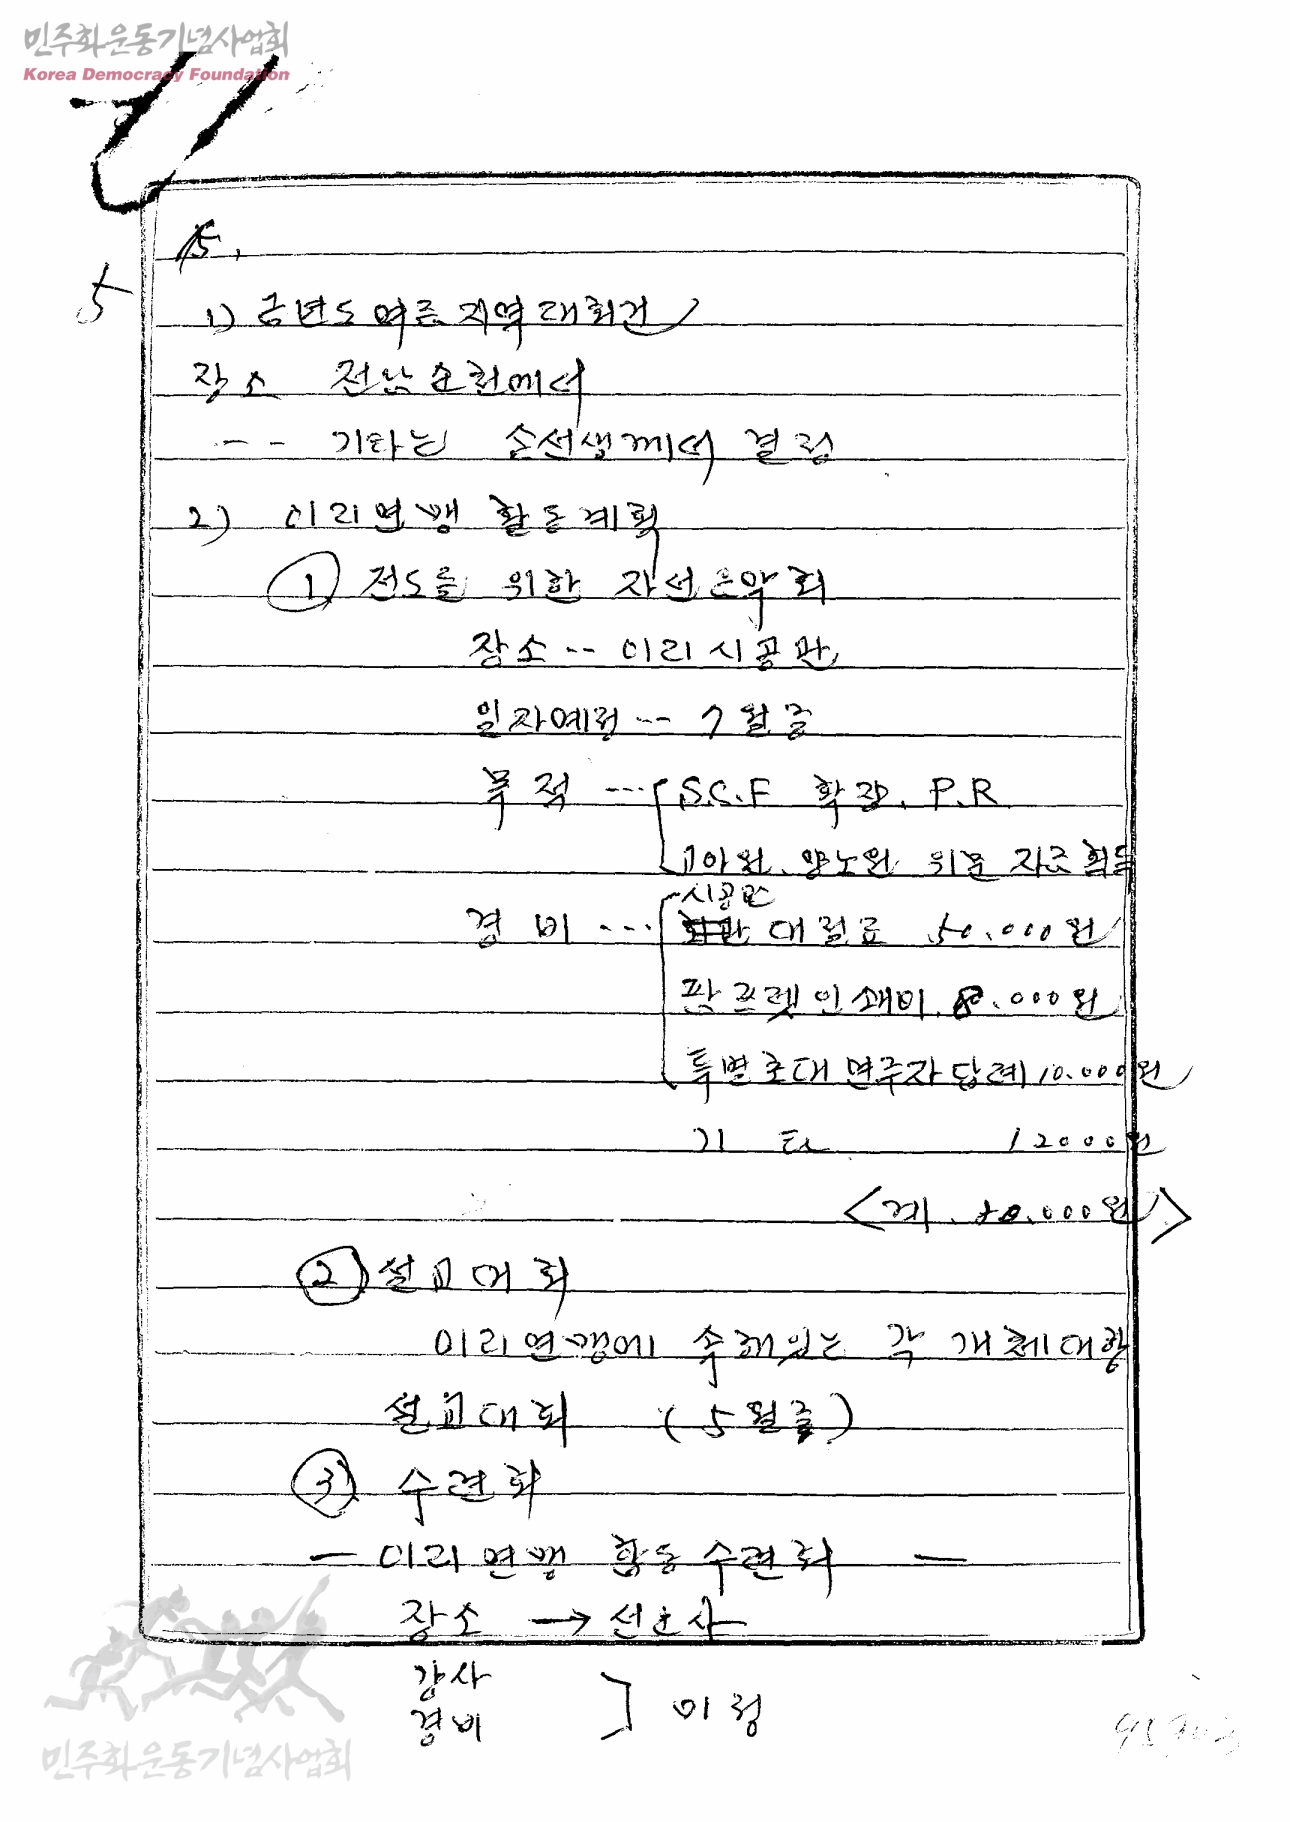 민주화운동기념사업회
Korea Democracy Foundation
15.
5
1) 금년도 여름 지역대회건
장소 전남순천에서
-- 기타는 손선생께서 결정
2) 이리연맹 활동계획
① 전도를 위한 자선음악회
장소 -- 이리시공관
일자예정 -- 7월중
목적 --- S.C.F 확장. P.R
고아원. 양노원 위문 자금획득
시공관
경비 --- 대절료 50.000원
팜프렛인쇄비. 8.000원
특별초대 연주자답례 10.000원
기타 12000원
<계. 80.000원>
② 설교대회
이리연맹에 속해있는 각 개체대항
설교대회 (5월중)
③ 수련회
- 이리연맹 합동수련회 -
장소 → 선운사
강사
경비 ] 미정
민주화운동기념사업회